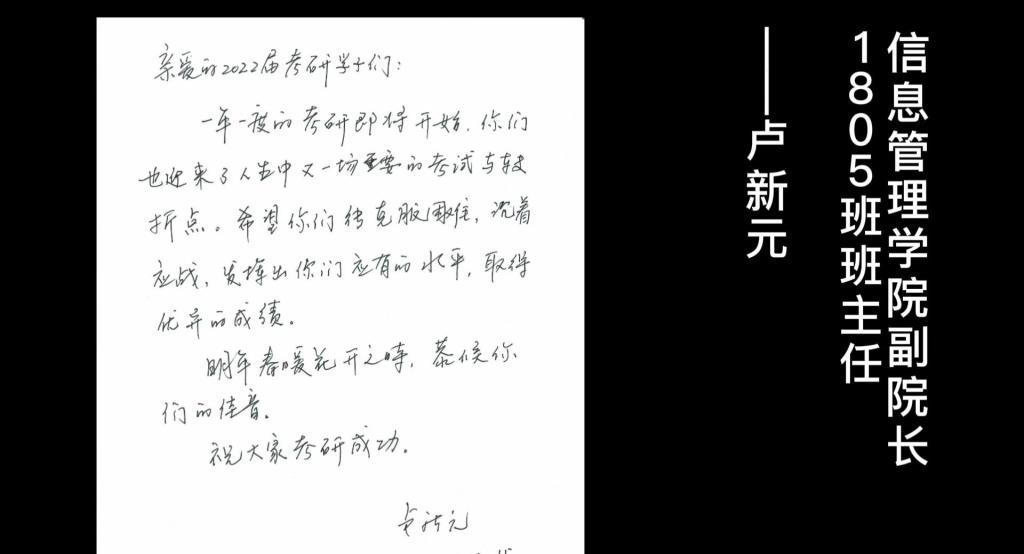 亲爱的2022届考研学子们：
一年一度的考研即将开始，你们
也迎来了人生中又一场重要的考试与转
折点。希望你们能克服艰难，沉着
应战，发挥出你们应有的水平，取得
优异的成绩。
明年春暖花开之时，恭候你
们的佳音。
祝大家考研成功。
卢新元
信息管理学院副院长
1805班班主任
——卢新元